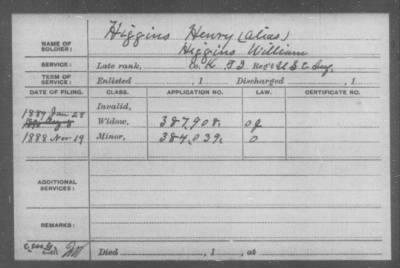 Higgins Henry (alias)
NAME OF SOLDIER: Higgins William
SERVICE: Late rank, Co. K Reg't U S C Inf.
TERM OF SERVICE: Enlisted , 1 Discharged , 1
DATE OF FILING. CLASS. APPLICATION NO. LAW. CERTIFICATE NO.
Invalid,
1889 Jan 28
Aug 8 Widow, 387,908.
1888 Nov 19 Minor, 384,039.
ADDITIONAL SERVICES:
REMARKS:
Died , 1 , at